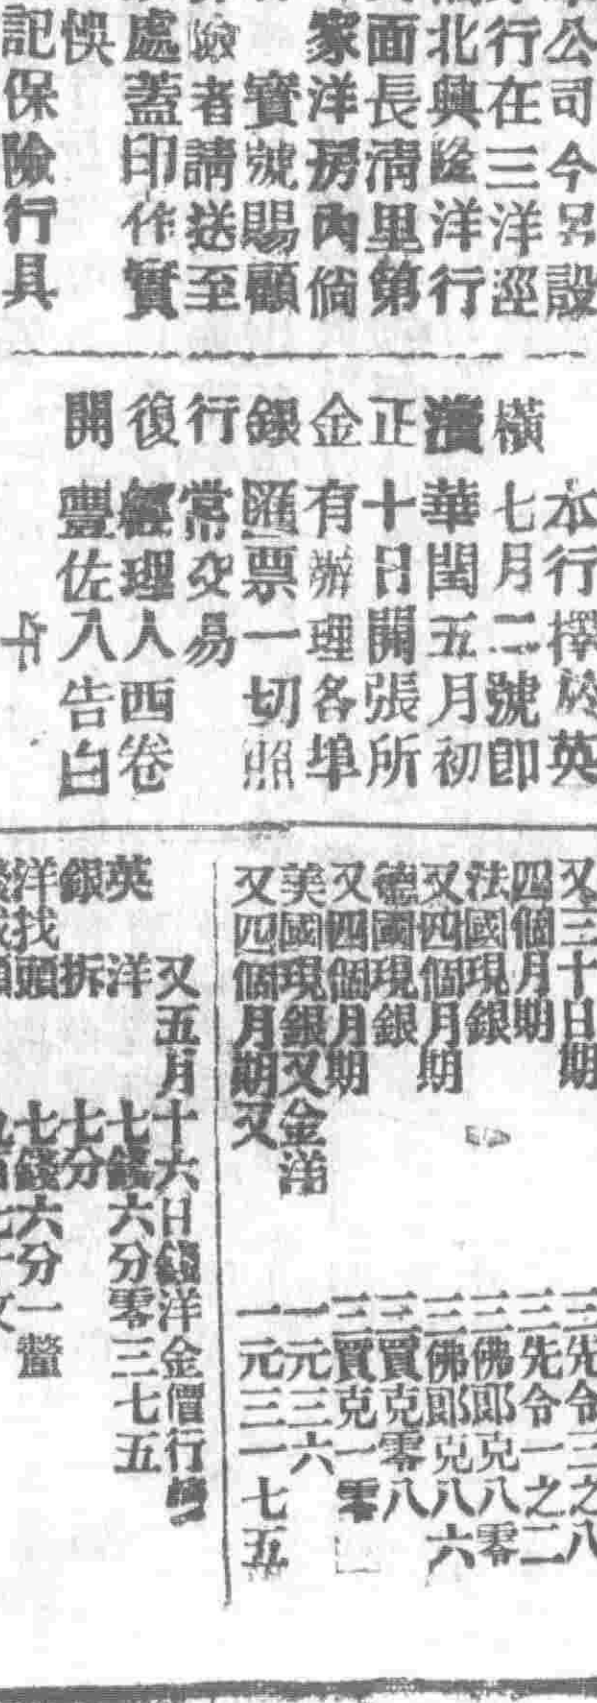 公司今另設
行在三洋涇
北興隆洋行
面長清里第
家洋房內倘
寶號賜顧
險者請送至
處蓋印作實
悞
記保險行具
橫濱正金銀行復開
本行擇於英
七月二號即
華閏五月初
十日開張所
有辦理各埠
匯票一切照
常交易
經理人西卷
豐佐入告白
又三十日期 三先令三之八
四個月期 三先令一之二
法國現銀 三佛郎克八零
又四個月期 三佛郎克八六
德國現銀 三買克零八
又四個月期 三買克一零
美國現銀又金洋 一元三六
又四個月期又 一元三一七五
又五月十六日錢洋金價行情
英洋 七錢六分零三七五
銀拆 七分
洋找頭 七錢六分一釐